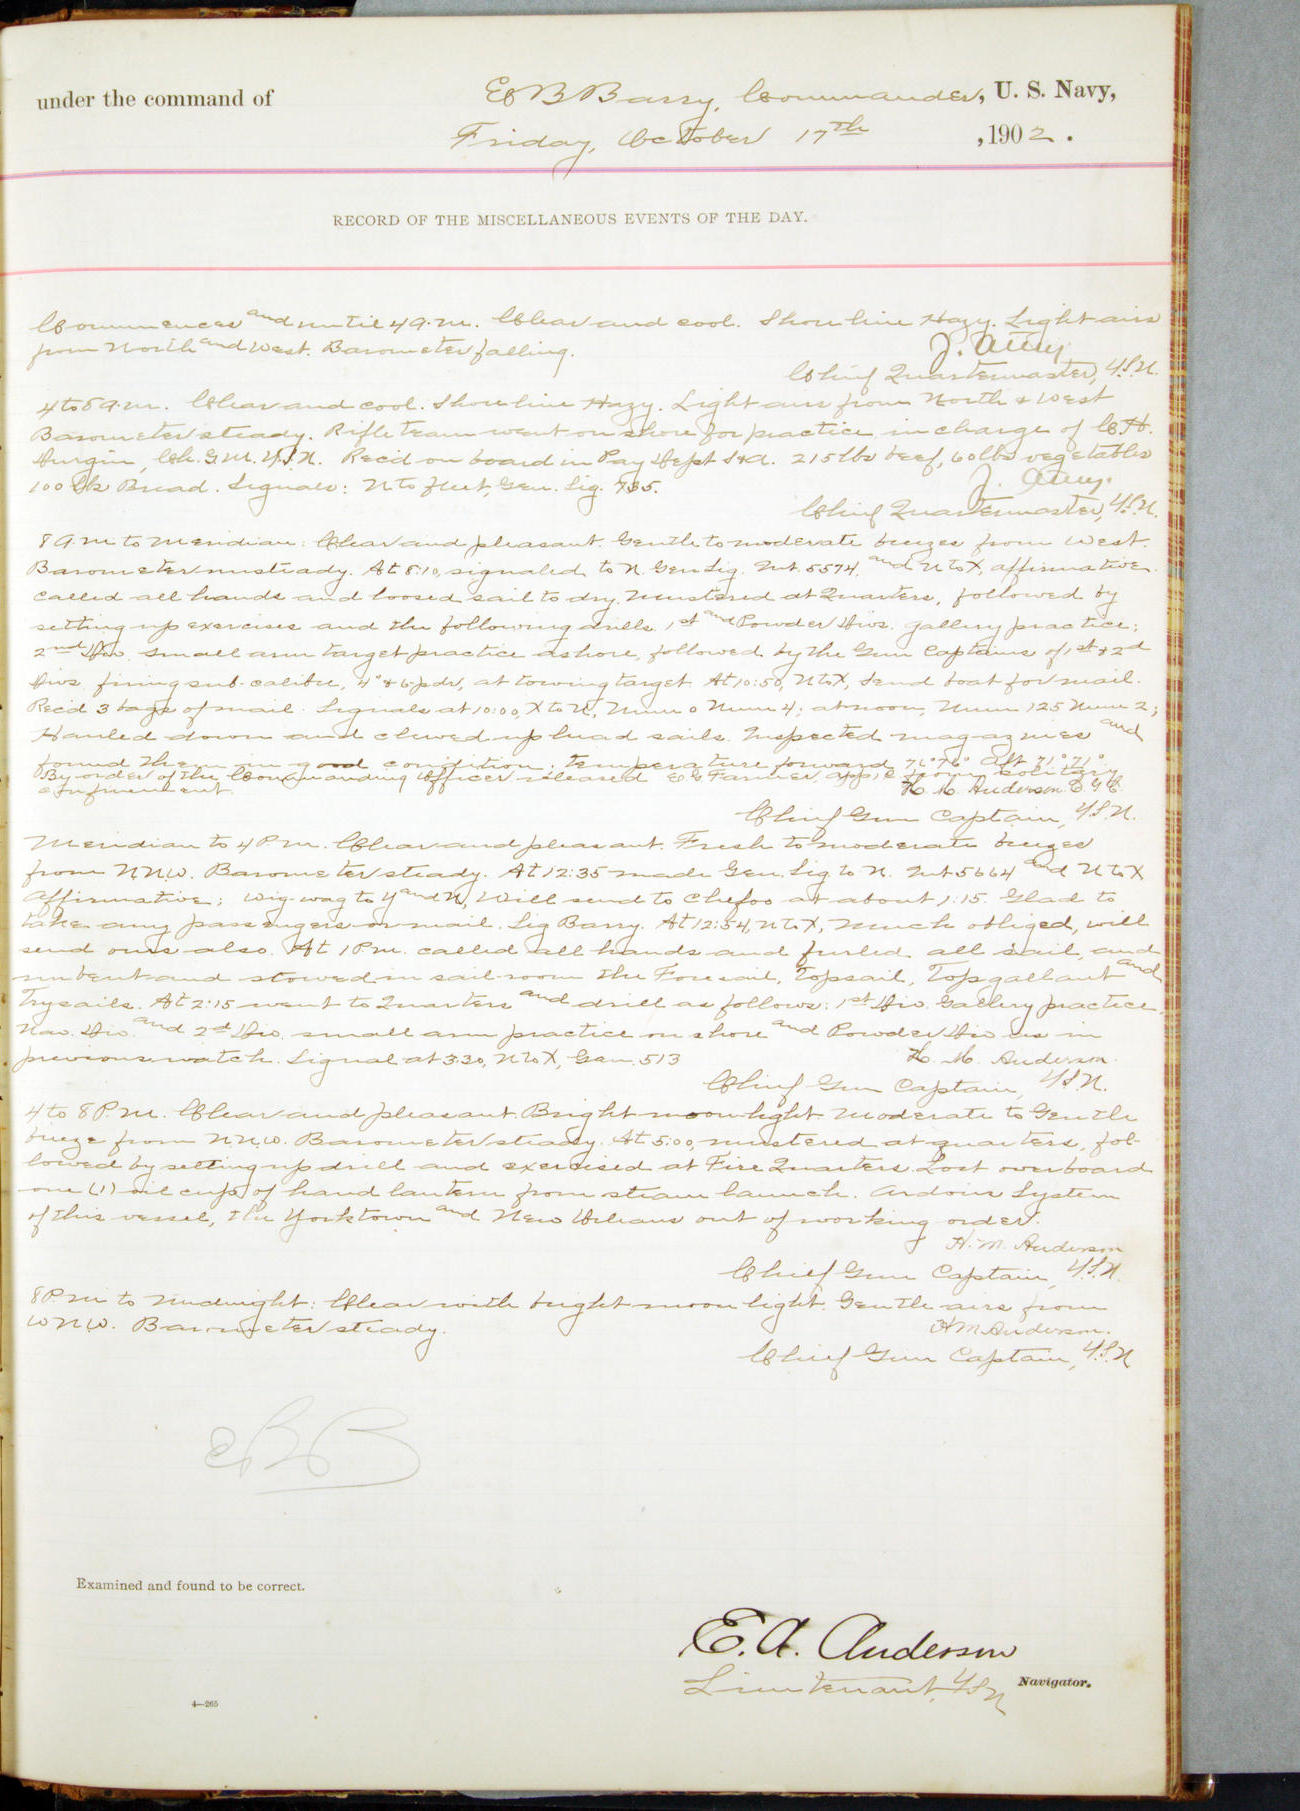 under the command of E B Barry, Commander, U. S. Navy,
Friday, October 17th, 1902.
RECORD OF THE MISCELLANEOUS EVENTS OF THE DAY.
Commences and until 4 a.m. Clear and cool. Shore line Hazy. Light airs
from North and West. Barometer falling.
Chief Quartermaster, U.S.N.
4 to 8 a.m. Clear and cool. Shore line Hazy. Light airs from North & West
Barometer steady. Rifle team went on shore for practice in charge of C.H.
Ch. G.M. U.S.N. Rec'd on board in Pay Dept S&A. 215 lbs beef, 60 lbs vegetables
100 lbs Bread. Signals: N to fleet, Gen. Sig. 735.
Chief Quartermaster, U.S.N.
8 a m to Meridian: Clear and pleasant. Gentle to moderate breezes from West.
Barometer unsteady. At 8:10, signaled to N. Gen Sig. Int. 5574, and N to X, affirmative.
Called all hands and loosed sail to dry. Mustered at Quarters, followed by
setting up exercises and the following drills. 1st and Powder Divs. gallery practice;
2nd Div. small arm target practice ashore, followed by the Gun Captains of 1st & 2d
Divs. firing sub-calibre, 4" & 6-pdr, at towing target. At 10:50, N to X, Send boat for mail.
Rec'd 3 bags of mail. Signals at 10:00, X to N, Num 0 Num 4; at noon, Num 125 Num 2;
Hauled down and clewed up head sails. Inspected magazines and
found them in good condition. Temperature forward 76° 76° Aft 71° 71°
By order of the Commanding Officer released E G Farmer, app, 2c from solitary
confinement. H. M. Anderson
Chief Gun Captain, U.S.N.
Meridian to 4 P m. Clear and pleasant. Fresh to moderate breezes
from N.N.W. Barometer steady. At 12:35 made Gen. Sig. to N. Int 5664 and N to X
affirmative; Wig-wag to Y and N, Will send to Chefoo at about 1:15. Glad to
take any passengers or mail. Sig Barry. At 12:54, N to X, Much obliged, will
send ours also. At 1 P.m. called all hands and furled all sail, and
unbent and stowed in sail-room the Foresail, Topsail, Topgallant and
Trysails. At 2:15 went to Quarters and drill as follows: 1st Div. Gallery practice,
Nav. Div. and 2d Div. small arm practice on shore and Powder Div as in
previous watch. Signal at 3:30, N to X, Gen. 513 H. M. Anderson.
Chief Gun Captain, U.S.N.
4 to 8 P.m. Clear and pleasant. Bright moonlight. Moderate to Gentle
breeze from N.N.W. Barometer steady. At 5:00, mustered at quarters, fol-
lowed by setting up drill and exercised at Fire Quarters. Lost overboard
one (1) oil cup of hand lantern from steam launch. Ardois System
of this vessel, the Yorktown and New Orleans out of working order.
H. M. Anderson
Chief Gun Captain, U.S.N.
8 P.m to Midnight: Clear with bright moon light. Gentle airs from
W N W. Barometer steady. H M Anderson.
Chief Gun Captain, U.S.N
EBB
Examined and found to be correct.
E. A. Anderson
Lieutenant, U S N Navigator.
4—265